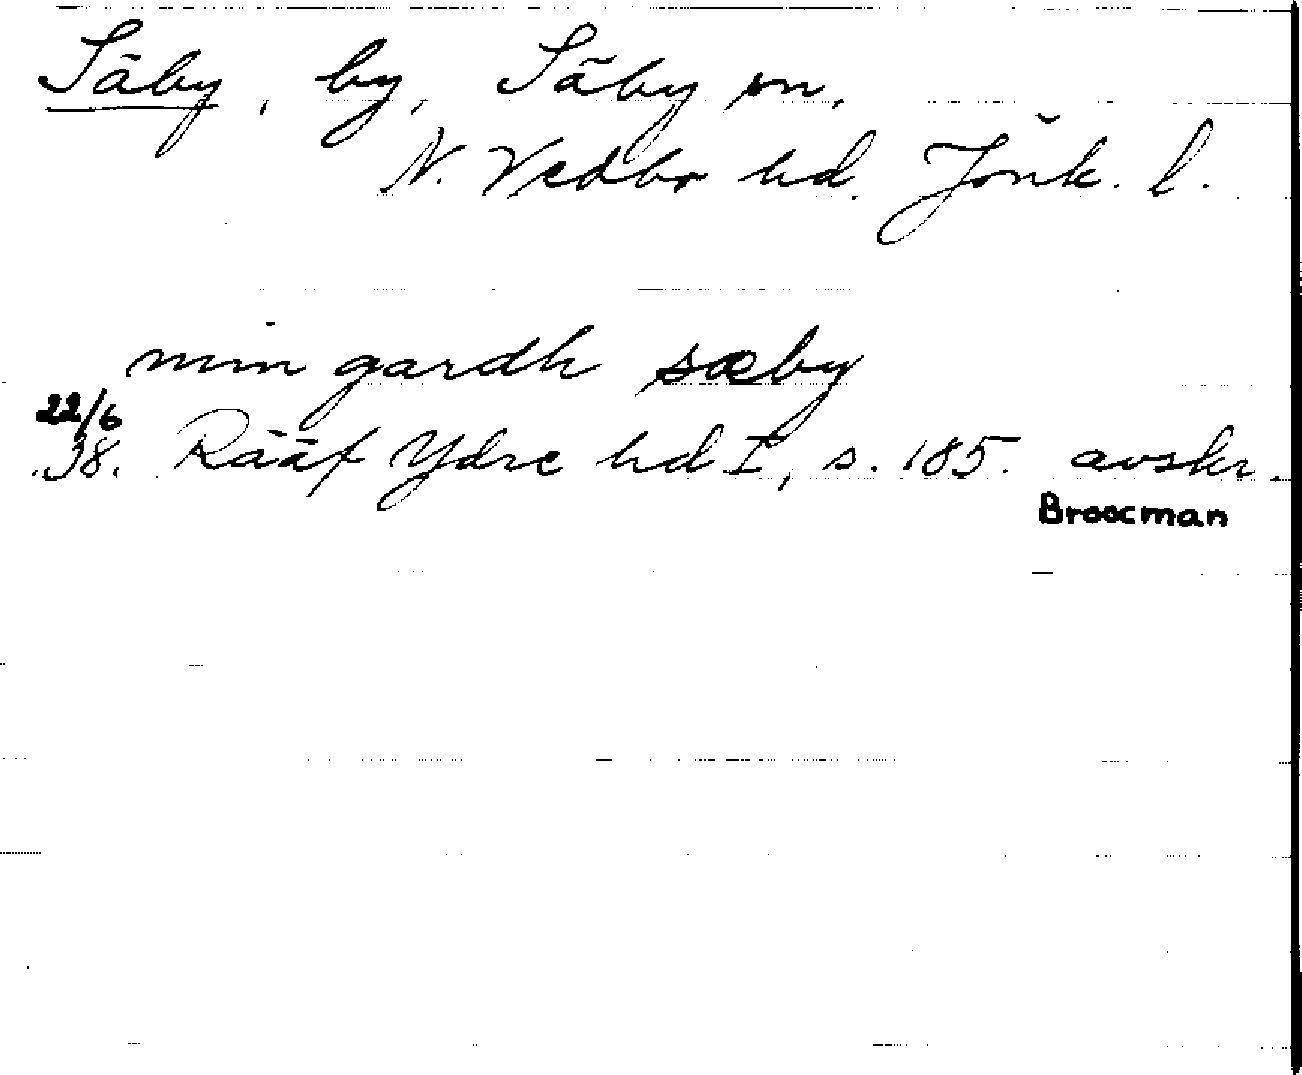 Säby, by, Säby sn,
N. Vedbo hd. Jönk. l.
min gardh sæby
22/6
38. Rääf Ydre hd I, s. 185. avskr.
Broocman